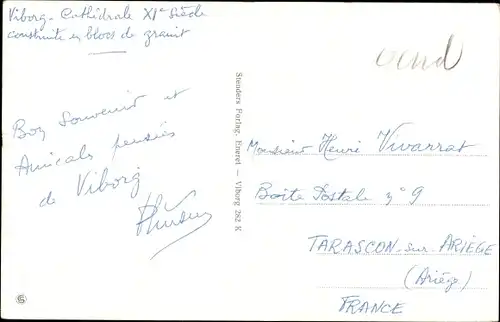 Viborg - Cathédrale XIe Siècle
construite en blocs de granit
Bon Souvenir et
Amicales pensées
de Viborg
Stenders Forlag. Eneret — Viborg 262 K
Monsieur Henri Vivarrat
Boite Postale n° 9
TARASCON-sur-ARIÈGE
(Ariège)
FRANCE